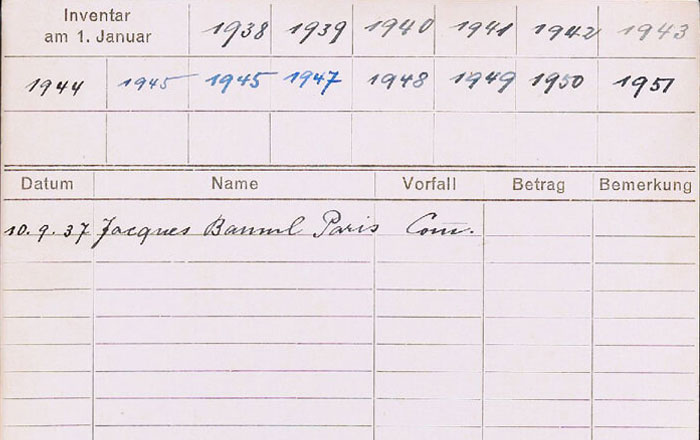 Inventar 1938 1939 1940 1941 1942 1943
am 1. Januar
1944 1945 1945 1947 1948 1949 1950 1951
Datum Name Vorfall Betrag Bemerkung
10. 9. 37 Jacques Paris Com.